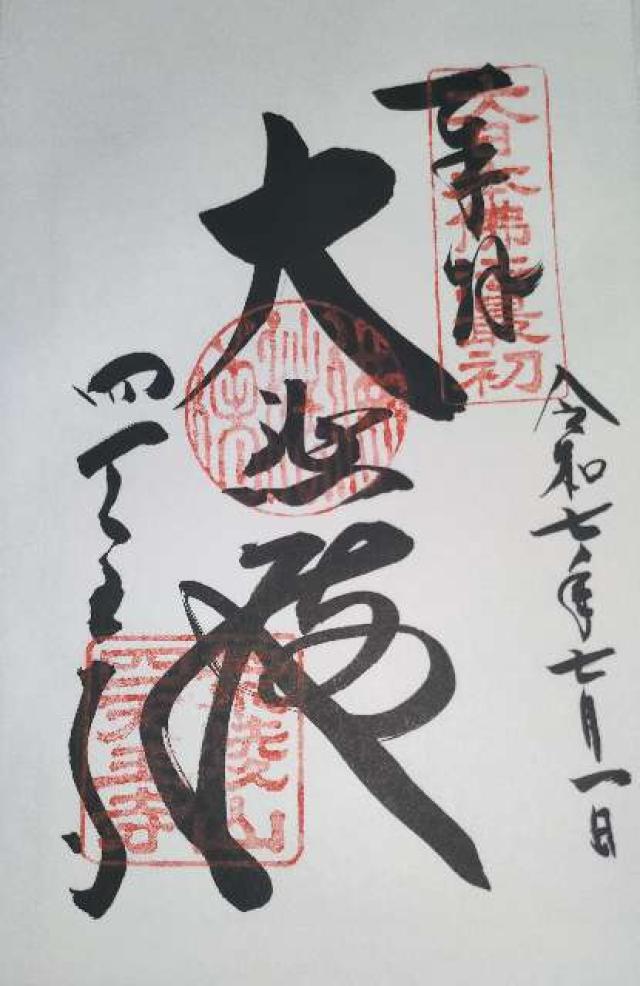 奉拝
大日本佛法最初
令和七年七月一日
大悲殿
四天王寺
荒陵山
四天王寺